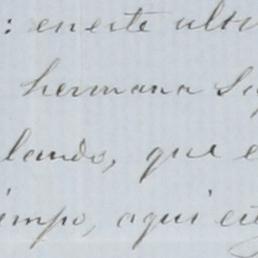 : en este ulti
hermana Su
lando, que e
impo, aqui